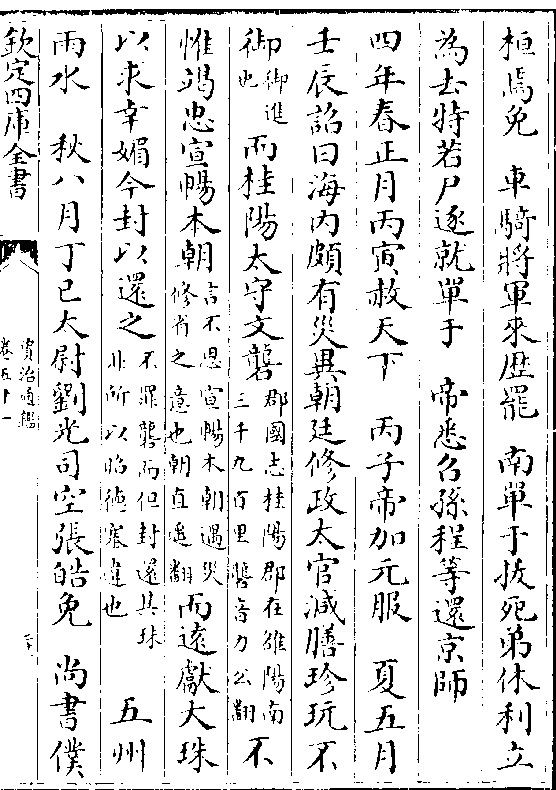 桓焉免　車騎將軍來歷罷　南單于拔死弟休利立
為去特若尸逐就單于　帝悉召孫程等還京師
四年春正月丙寅赦天下　丙子帝加元服　夏五月
壬辰詔曰海內頗有災異朝廷修政太官減膳珍玩不
御御進也而桂陽太守文礱郡國志桂陽郡在雒陽南三千九百里礱音力公翻不
惟竭忠宣暢本朝言不思宣暢本朝遇災修省之意也朝直遥翻而遠獻大珠
以求幸媚今封以還之不罪礱而但封還其珠非所以昭德塞違也　五州
雨水　秋八月丁巳太尉劉光司空張皓免　尚書僕
欽定四庫全書
資治通鑑
卷五十一